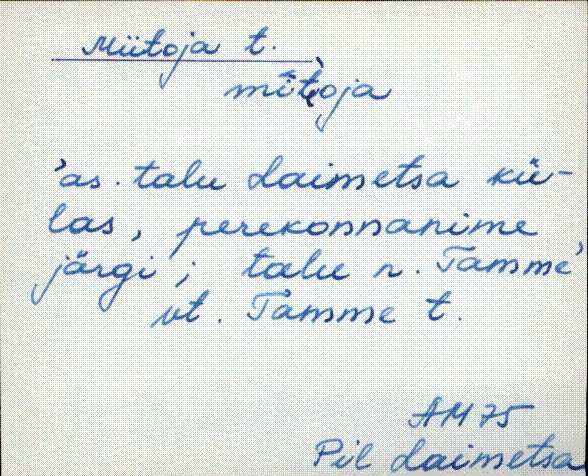 Miitoja t.
mīt̀oja
'as. talu Laimetsa kü-
las, perekonnanime
järgi; talu n. Tamme'
vt. Tamme t.
AM 75
Pil Laimetsa